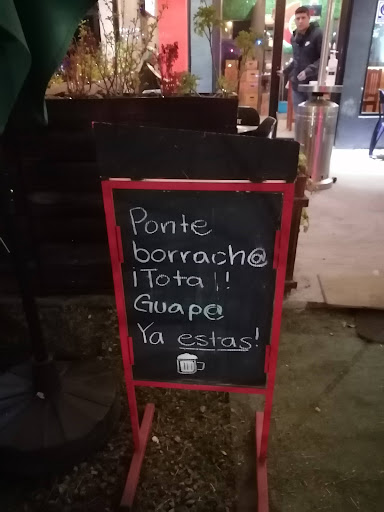 Ponte
borrach@
¡Total!
Guap@
Ya estas!